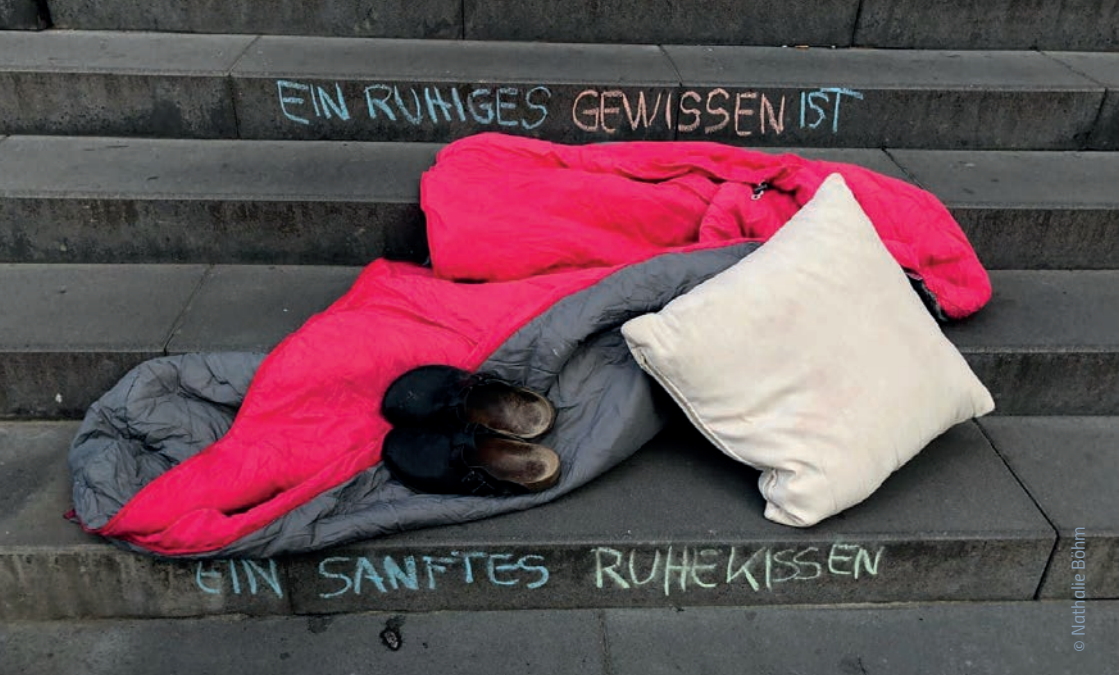 EIN RUHIGES GEWISSEN IST
EIN SANFTES RUHEKISSEN
© Nathalie Böhm